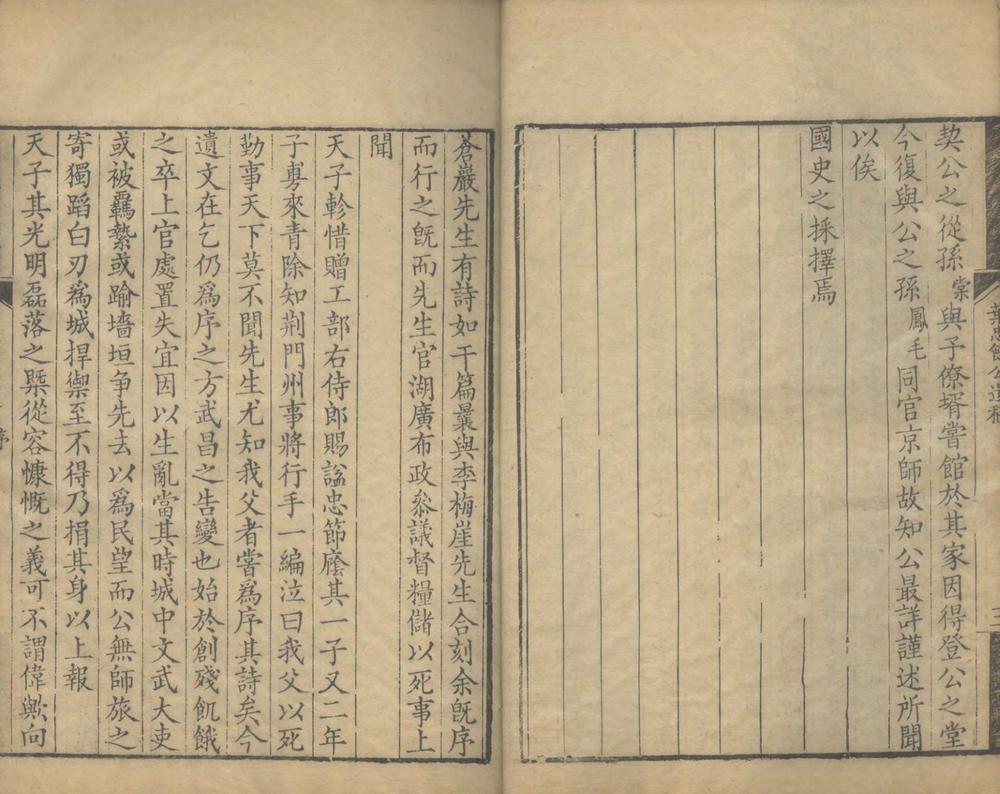 契公之從孫棠與子僚壻嘗館於其家因得登公之堂
今復與公之孫鳳毛同官京師故知公最詳謹述所聞
以俟
國史之採擇焉
葉忠節公遺稿
二
蒼巖先生有詩如干篇曩與李梅崖先生合刻余旣序
而行之旣而先生官湖廣布政叅議督糧儲以死事上
聞
天子軫惜贈工部右侍郎賜諡忠節廕其一子又二年
子旉來青除知荆門州事將行手一編泣曰我父以死
勤事天下莫不聞先生尤知我父者嘗爲序其詩矣今
遺文在乞仍爲序之方武昌之告變也始於創殘飢餓
之卒上官處置失宜因以生亂當其時城中文武大吏
或被羈縶或踰墻垣争先去以爲民望而公無師旅之
寄獨蹈白刃爲城捍禦至不得乃捐其身以上報
天子其光明磊落之槩從容慷慨之義可不謂偉歟向
序